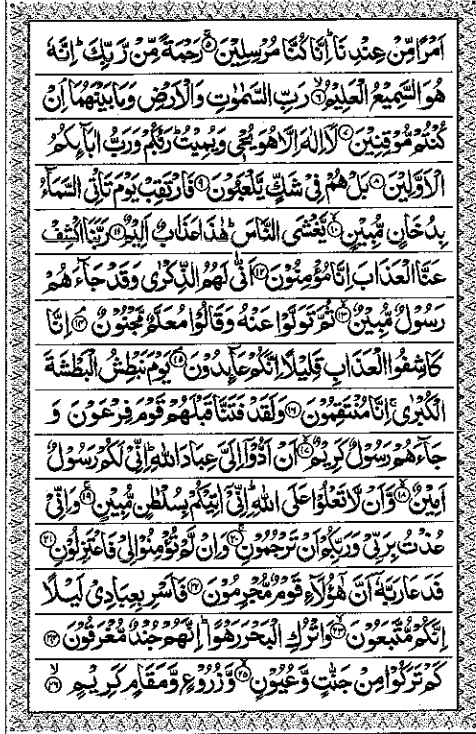 اَمْرًا مِّنْ عِنْدِنَا ؕ اِنَّا كُنَّا مُرْسِلِيْنَ ۚ﴿۵﴾ رَحْمَةً مِّنْ رَّبِّكَ ؕ اِنَّهٗ
هُوَ السَّمِيْعُ الْعَلِيْمُ ۙ﴿۶﴾ رَبِّ السَّمٰوٰتِ وَالْاَرْضِ وَمَا بَيْنَهُمَا ۘ اِنْ
كُنْتُمْ مُّوْقِنِيْنَ ﴿۷﴾ لَاۤ اِلٰهَ اِلَّا هُوَ يُحْيٖ وَيُمِيْتُ ؕ رَبُّكُمْ وَرَبُّ اٰبَآئِكُمُ
الْاَوَّلِيْنَ ﴿۸﴾ بَلْ هُمْ فِيْ شَكٍّ يَّلْعَبُوْنَ ﴿۹﴾ فَارْتَقِبْ يَوْمَ تَاْتِي السَّمَآءُ
بِدُخَانٍ مُّبِيْنٍ ۙ﴿۱۰﴾ يَّغْشَى النَّاسَ ؕ هٰذَا عَذَابٌ اَلِيْمٌ ﴿۱۱﴾ رَبَّنَا اكْشِفْ
عَنَّا الْعَذَابَ اِنَّا مُؤْمِنُوْنَ ﴿۱۲﴾ اَنّٰى لَهُمُ الذِّكْرٰى وَقَدْ جَآءَهُمْ
رَسُوْلٌ مُّبِيْنٌ ۙ﴿۱۳﴾ ثُمَّ تَوَلَّوْا عَنْهُ وَقَالُوْا مُعَلَّمٌ مَّجْنُوْنٌ ۘ﴿۱۴﴾ اِنَّا
كَاشِفُوا الْعَذَابِ قَلِيْلًا اِنَّكُمْ عَآئِدُوْنَ ۘ﴿۱۵﴾ يَوْمَ نَبْطِشُ الْبَطْشَةَ
الْكُبْرٰى ۚ اِنَّا مُنْتَقِمُوْنَ ﴿۱۶﴾ وَلَقَدْ فَتَنَّا قَبْلَهُمْ قَوْمَ فِرْعَوْنَ وَ
جَآءَهُمْ رَسُوْلٌ كَرِيْمٌ ۙ﴿۱۷﴾ اَنْ اَدُّوْۤا اِلَيَّ عِبَادَ اللّٰهِ ؕ اِنِّيْ لَكُمْ رَسُوْلٌ
اَمِيْنٌ ۙ﴿۱۸﴾ وَّاَنْ لَّا تَعْلُوْا عَلَى اللّٰهِ ؕ اِنِّيْۤ اٰتِيْكُمْ بِسُلْطٰنٍ مُّبِيْنٍ ۚ﴿۱۹﴾ وَاِنِّيْ
عُذْتُ بِرَبِّيْ وَرَبِّكُمْ اَنْ تَرْجُمُوْنِ ؗ﴿۲۰﴾ وَاِنْ لَّمْ تُؤْمِنُوْا لِيْ فَاعْتَزِلُوْنِ ﴿۲۱﴾
فَدَعَا رَبَّهٗۤ اَنَّ هٰۤؤُلَآءِ قَوْمٌ مُّجْرِمُوْنَ ؓ﴿۲۲﴾ فَاَسْرِ بِعِبَادِيْ لَيْلًا
اِنَّكُمْ مُّتَّبَعُوْنَ ۙ﴿۲۳﴾ وَاتْرُكِ الْبَحْرَ رَهْوًا ؕ اِنَّهُمْ جُنْدٌ مُّغْرَقُوْنَ ﴿۲۴﴾
كَمْ تَرَكُوْا مِنْ جَنّٰتٍ وَّعُيُوْنٍ ۙ﴿۲۵﴾ وَّزُرُوْعٍ وَّمَقَامٍ كَرِيْمٍ ۙ﴿۲۶﴾